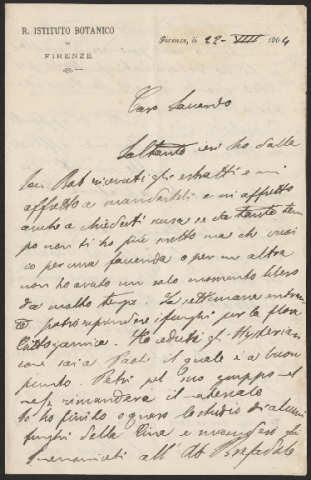 R. ISTITUTO BOTANICO
DI
FIRENZE
Firenze, li 22-VIII 1904
Caro Saccardo
Soltanto ieri ho dalla
Soc. Bot ricevuti gli estratti e mi
affretto a mandarteli e mi affretto
anche a chiederti scusa se da tanto tem
po non ti ho più scritto ma che vuoi
o per una faccenda o per un altra
non ho avuto un solo momento libero
da molto tempo. La settimana entran
te potrò riprendere i funghi per la flora
Crittogamica. Ho ceduti gli Hysteriac
a Paoli il quale è a buon
punto. Petri pel suo gruppo
rimandare il materiale
Io ho finito o quasi lo studio di alcuni
funghi della Cina e
all' Ab